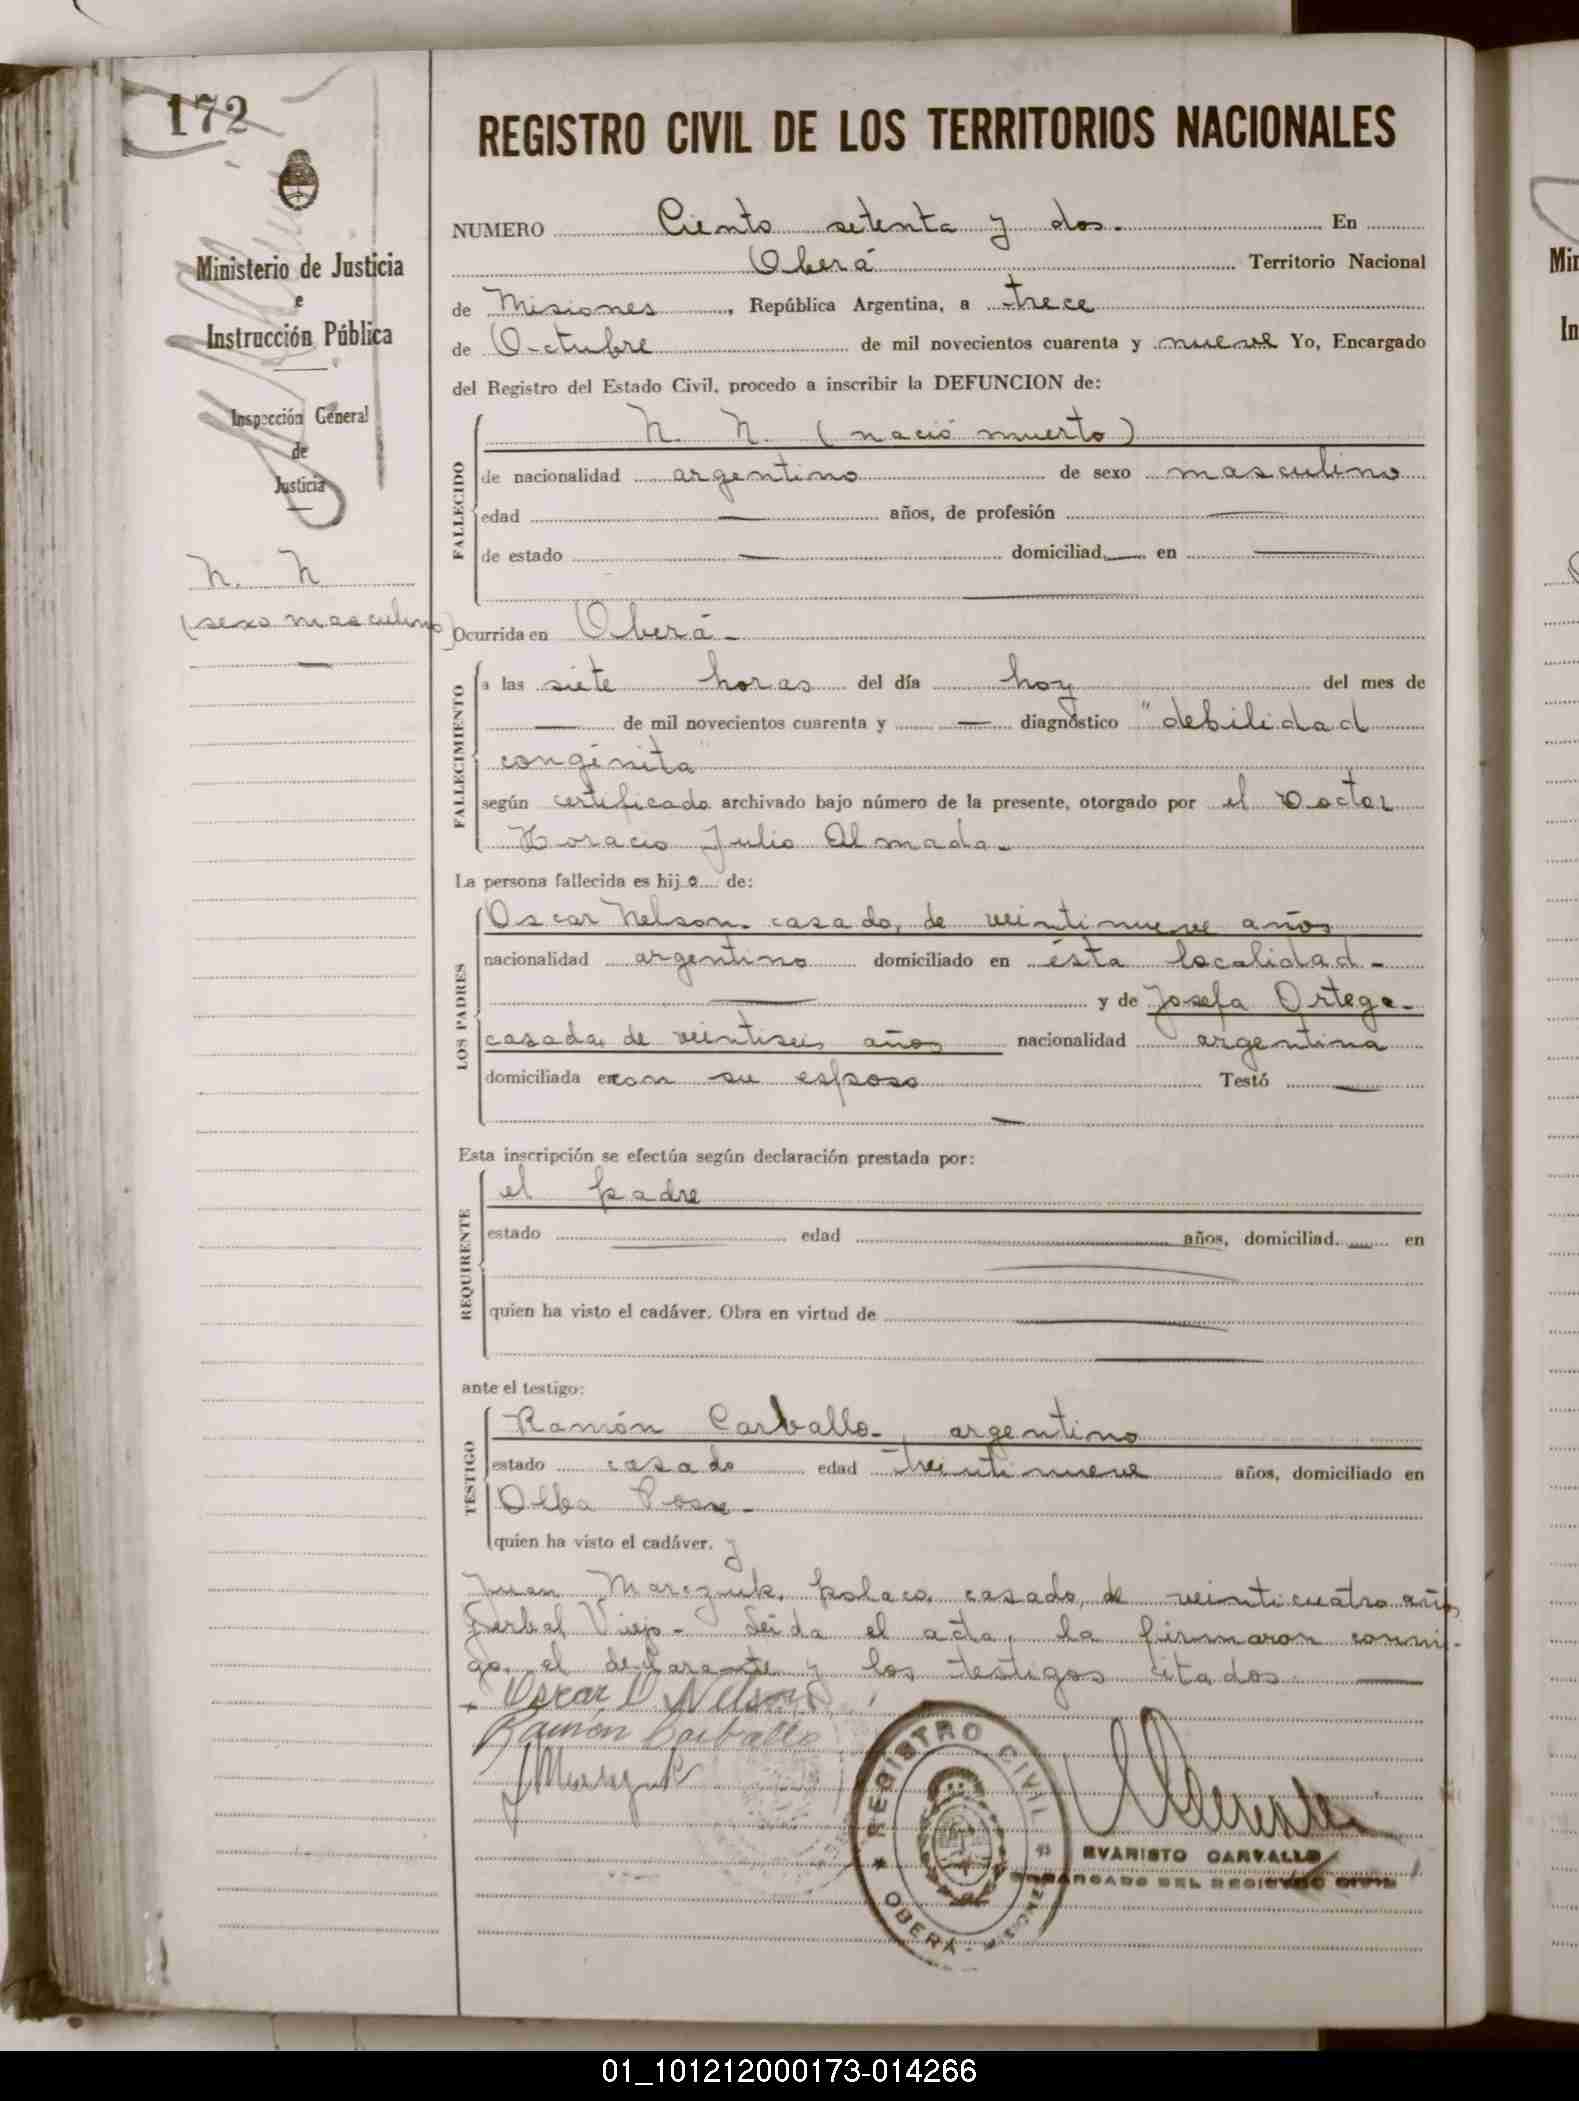 172
REGISTRO CIVIL DE LOS TERRITORIOS NACIONALES
Ministerio de Justicia
e
Instrucción Pública
Inspección General
de
Justicia
N. N
(sexo masculino)
NUMERO Ciento setenta y dos. En
Oberá Territorio Nacional
de Misiones, República Argentina, a trece
de Octubre de mil novecientos cuarenta y nueve Yo, Encargado
del Registro del Estado Civil, procedo a inscribir la DEFUNCION de:
FALLECIDO
N. N. (nació muerto)
de nacionalidad argentino de sexo masculino
edad — años, de profesión —
de estado — domiciliad — en —
Ocurrida en Oberá -
FALLECIMIENTO
a las siete horas del día hoy del mes de
— de mil novecientos cuarenta y — diagnóstico "debilidad
congénita"
según certificado archivado bajo número de la presente, otorgado por el Doctor
Horacio Julio Almada-
La persona fallecida es hijo de:
LOS PADRES
Oscar Nelson. casado, de veintinueve años
nacionalidad argentino domiciliado en ésta localidad -
— y de Josefa Ortega-
casada, de veintiseis años nacionalidad argentina
domiciliada en con su esposo Testó —
—
Esta inscripción se efectúa según declaración prestada por:
REQUIRENTE
el padre
estado — edad — años, domiciliad — en
—
quien ha visto el cadáver. Obra en virtud de —
—
ante el testigo:
TESTIGO
Ramón Carballo-, argentino
estado casado edad treintinueve años, domiciliado en
Alba Posse-
quien ha visto el cadáver. y
Juan Marczuk, polaco, casado, de veinticuatro años
Yerbal Viejo- Leida el acta, la firmaron conmi-
go, el declarante y los testigos citados —
Oscar D. Nelson
Ramón Carballo
J Marczuk
REGISTRO CIVIL
OBERÁ - MISIONES
EVARISTO CARVALLO
ENCARGADO DEL REGISTRO CIVIL
01_101212000173-014266